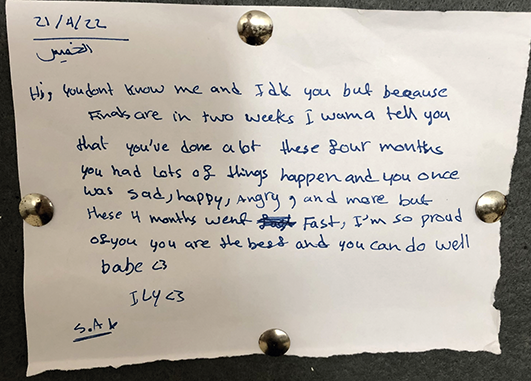 21/4/22
الخميس
Hi, You dont know me and Idk you but because
Finals are in two weeks I wanna tell you
that you've done a lot these four months
you had lots of things happen and you once
was sad, happy, Angry, and more but
these 4 months went fast Fast, I'm so proud
of you you are the best and you can do well
babe <3
ILY <3